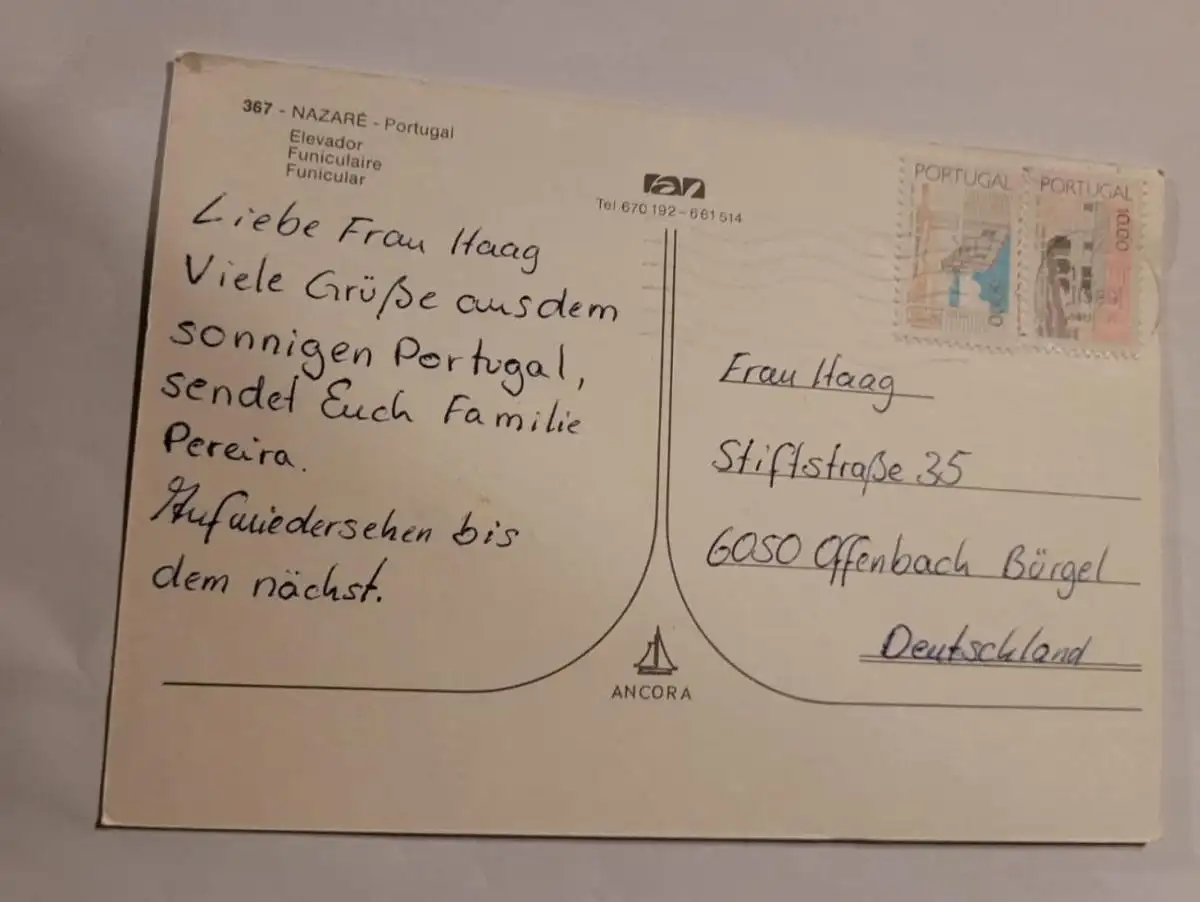 367 - NAZARÉ - Portugal
Elevador
Funiculaire
Funicular
Liebe Frau Haag
Viele Grüße aus dem
sonnigen Portugal,
sendet Euch Familie
Pereira.
Aufwiedersehen bis
dem nächst.
ran
Tel 670 192 - 661 514
ANCORA
PORTUGAL
PORTUGAL
10.00
Frau Haag
Stiftstraße 35
6050 Offenbach Bürgel
Deutschland